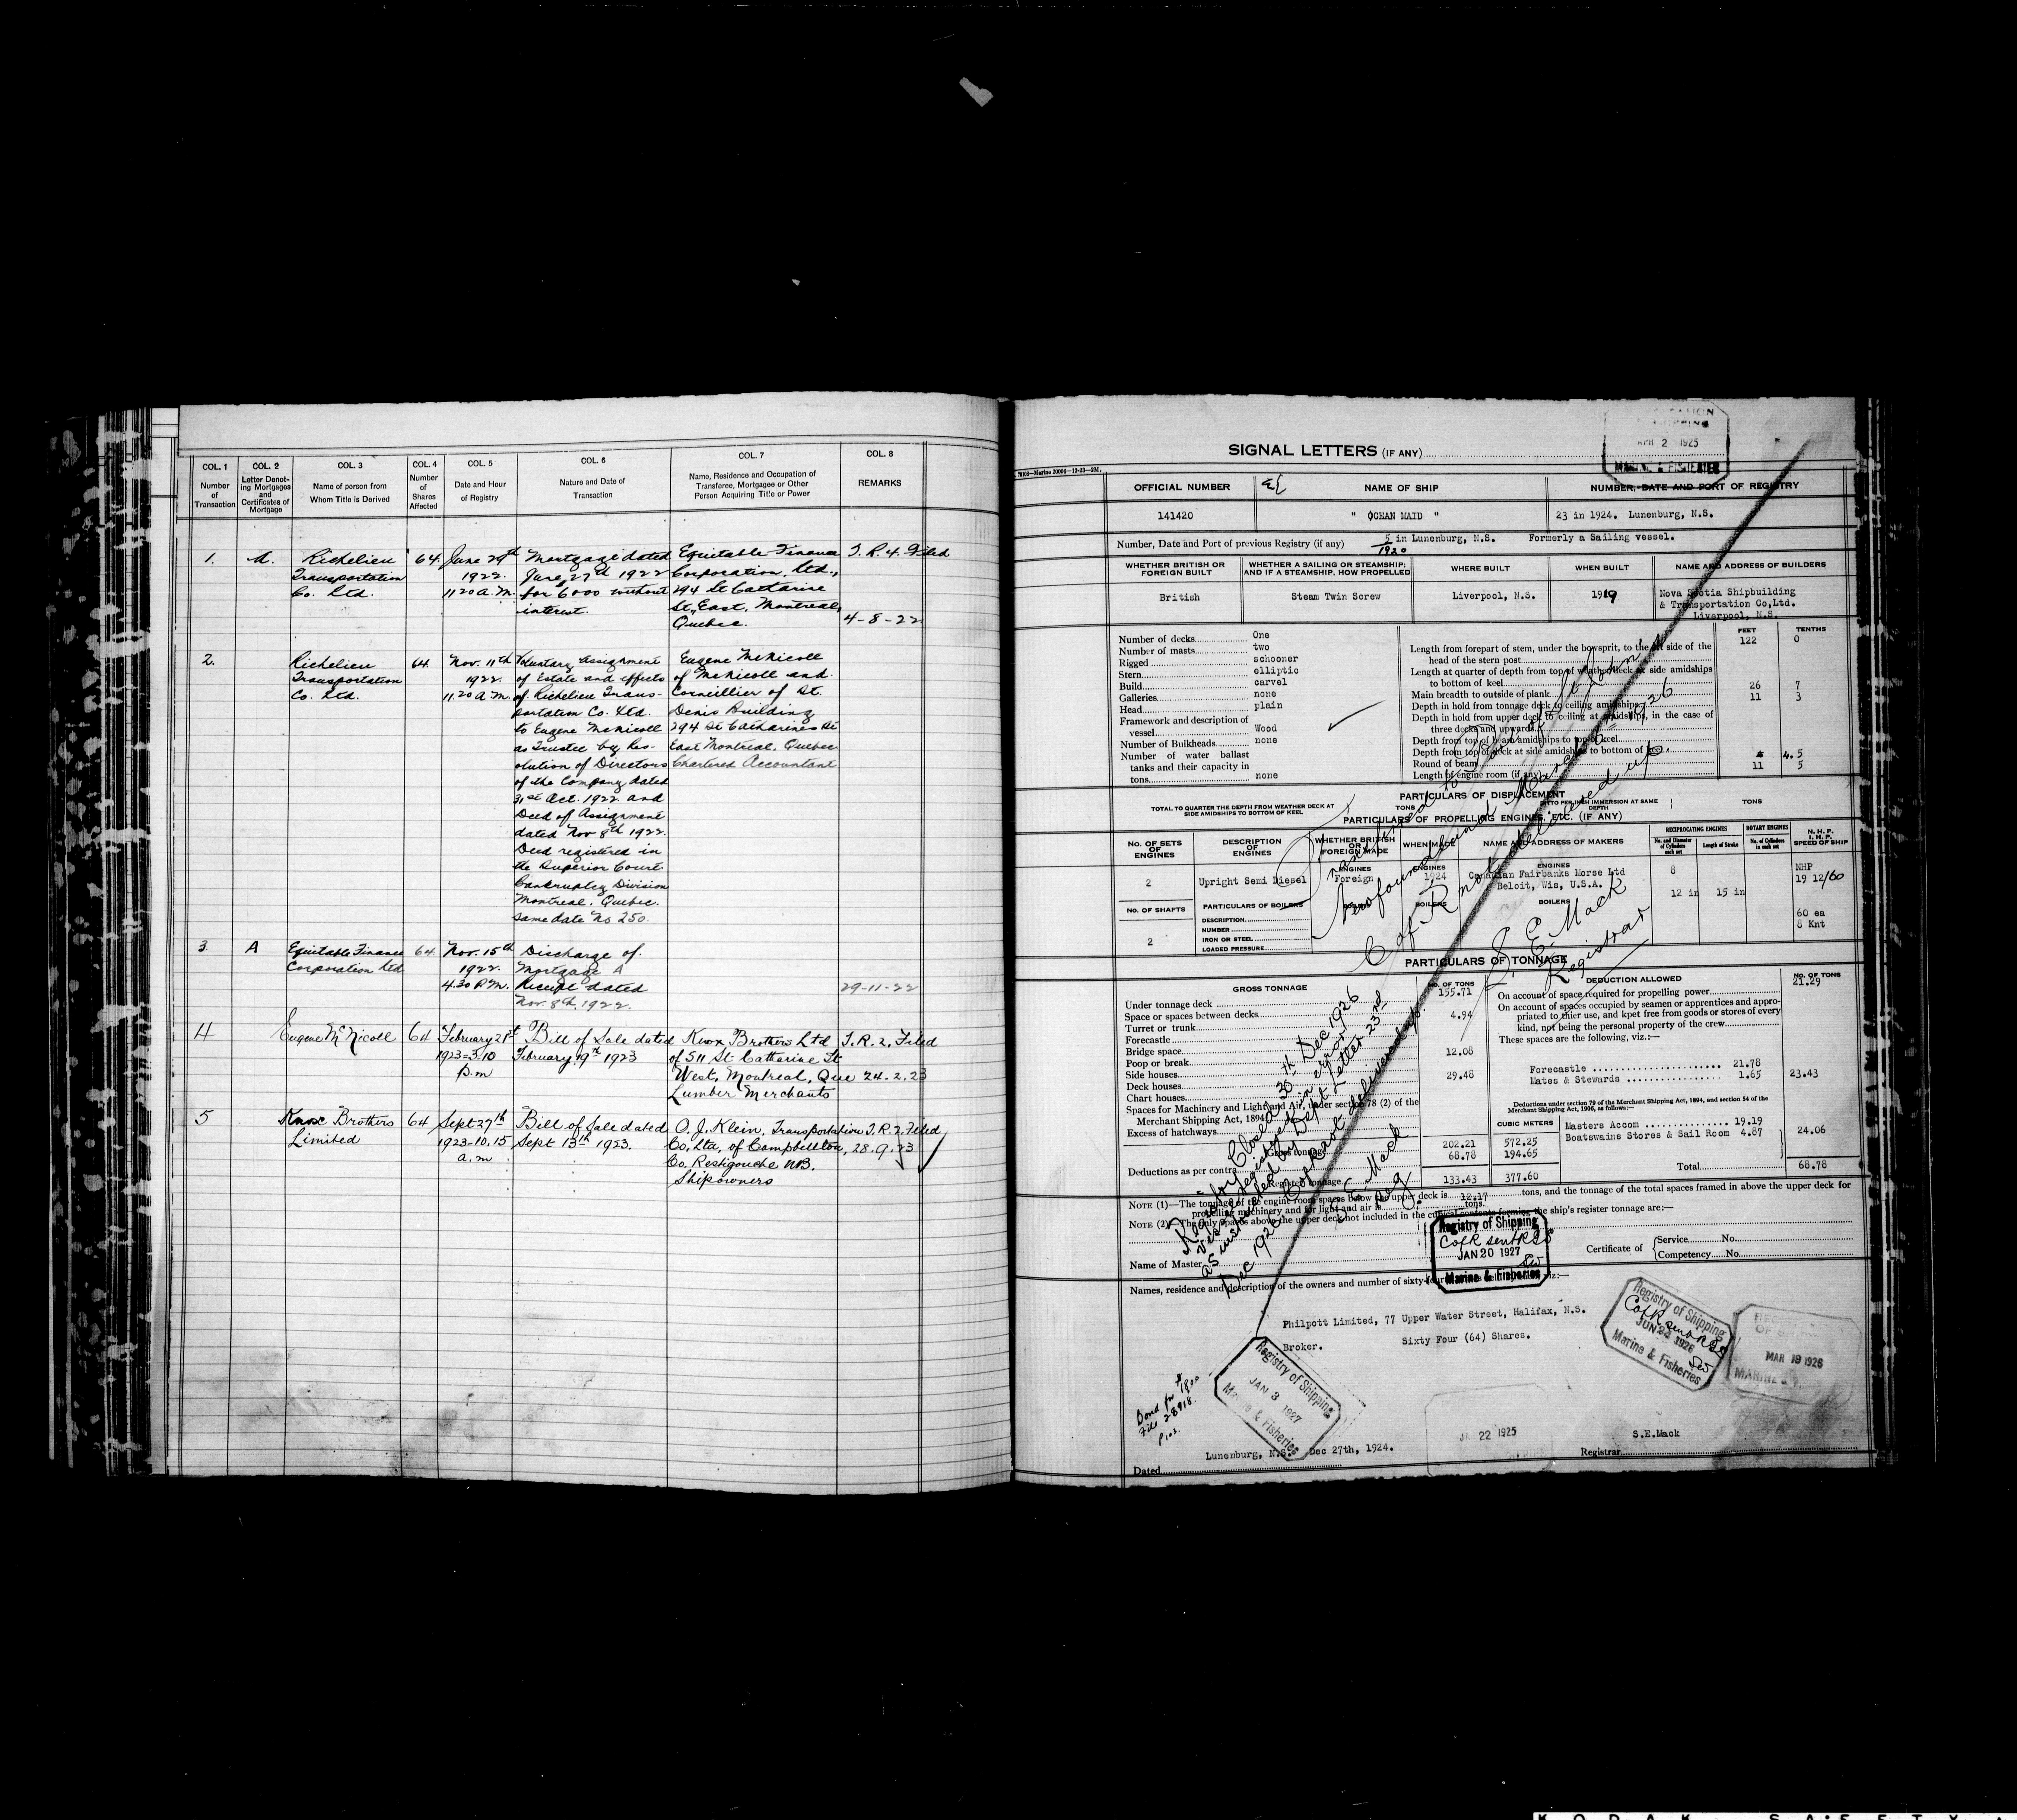 COL. 1
Number
of
Transaction
COL. 2
Letter Denot-
ing Mortgages
and
Certificates of
Mortgage
COL. 3
Name of person from
Whom Title is Derived
COL. 4
Number
of
Shares
Affected
COL. 5
Date and Hour
of Registry
COL. 6
Nature and Date of
Transaction
COL. 7
Name, Residence and Occupation of
Transferee, Mortgagee or Other
Person Acquiring Title or Power
COL. 8
REMARKS
1.
A.
Richelieu
Transportation
Co. Ltd.
64
June 29th
1922.
11.20 A.M.
Mortgage dated
June 27th 1922
for 6000 without
interest.
Equitable Finance
Corporation, Ltd.,
294 St Catharine
St, East, Montreal,
Quebec.
T. R. 4. Filed
4-8-22
2.
Richelieu
Transportation
Co. Ltd.
64.
Nov. 11th
1922.
11.20 A.M.
Voluntary assignment
of Estate and effects
of Richelieu Trans-
portation Co. Ltd.
to Eugene McNicoll
as Trustee by Res-
olution of Directors
of the Company dated
31st Oct. 1922 and
Deed of Assignment
dated Nov 8th 1922.
Deed registered in
the Superior Court
Bankruptcy Division
Montreal, Quebec.
same date No 250.
Eugene McNicoll
of McNicoll and
Corneillier of St.
Denis Building
294 St Catharines St
East Montreal. Quebec
Chartered Accountant
3.
A
Equitable Finance
Corporation Ltd
64
Nov. 15th
1922.
4.30 P.M.
Discharge of
Mortgage A
Receipt dated
Nov. 8th, 1922.
29-11-22
4
Eugene McNicoll
64
February 21st
1923=3.10
P.m
Bill of Sale dated
February 19th 1923
Knox Brothers Ltd
of 511 St. Catharine St
West, Montreal, Que
Lumber Merchants
T. R. 2. Filed
24.2.23
5
Knox Brothers
Limited
64
Sept 27th
1923-10.15
a.m.
Bill of Sale dated
Sept 13th 1923.
O. J. Klein, Transportation
Co, Lta, of Campbellton,
Co. Restigouche NB.
Shipowners
T. R. 2. Filed
28.9.23
SIGNAL LETTERS (IF ANY)
APR 2 1925
MARINE & FISHERIES
OFFICIAL NUMBER
NAME OF SHIP
NUMBER, DATE AND PORT OF REGISTRY
141420
" OCEAN MAID "
23 in 1924. Lunenburg, N.S.
Number, Date and Port of previous Registry (if any)
5/1920 in Lunenburg, N.S. Formerly a Sailing vessel.
WHETHER BRITISH OR
FOREIGN BUILT
WHETHER A SAILING OR STEAMSHIP;
AND IF A STEAMSHIP, HOW PROPELLED
WHERE BUILT
WHEN BUILT
NAME AND ADDRESS OF BUILDERS
British
Steam Twin Screw
Liverpool, N.S.
1919
Nova Scotia Shipbuilding
& Transportation Co,Ltd.
Liverpool, N.S.
Number of decks One
Number of masts two
Rigged schooner
Stern elliptic
Build carvel
Galleries none
Head plain
Framework and description of
vessel Wood
Number of Bulkheads none
Number of water ballast
tanks and their capacity in
tons none
FEET TENTHS
Length from forepart of stem, under the bowsprit, to the aft side of the
head of the stern post 122 0
Length at quarter of depth from top of weather deck at side amidships
to bottom of keel
Main breadth to outside of plank 26 7
Depth in hold from tonnage deck to ceiling amidships 11 3
Depth in hold from upper deck to ceiling at amidships, in the case of
three decks and upwards
Depth from top of beam amidships to top of keel
Depth from top of deck at side amidships to bottom of keel
Round of beam 4.5
Length of engine room (if any) 11 5
PARTICULARS OF DISPLACEMENT
TOTAL TO QUARTER THE DEPTH FROM WEATHER DECK AT
SIDE AMIDSHIPS TO BOTTOM OF KEEL
TONS
DITTO PER INCH IMMERSION AT SAME
DEPTH
TONS
PARTICULARS OF PROPELLING ENGINES, ETC. (IF ANY)
NO. OF SETS
OF
ENGINES
DESCRIPTION
OF
ENGINES
WHETHER BRITISH
OR
FOREIGN MADE
WHEN MADE
NAME AND ADDRESS OF MAKERS
RECIPROCATING ENGINES
No. and Diameter
of Cylinders
each set
Length of Stroke
ROTARY ENGINES
No. of Cylinders
in each set
N. H. P.
I. H. P.
SPEED OF SHIP
2
Upright Semi Diesel
ENGINES
Foreign
ENGINES
1924
ENGINES
Canadian Fairbanks Morse Ltd
Beloit, Wis, U.S.A.
8
12 in
15 in
NHP
19 12/60
60 ea
8 Knt
NO. OF SHAFTS
2
PARTICULARS OF BOILERS
DESCRIPTION
NUMBER
IRON OR STEEL
LOADED PRESSURE
BOILERS
BOILERS
Transferred to Port of St. John's
Newfoundland March 6th 1926
C of R not delivered up.
S. E. Mack
Registrar
PARTICULARS OF TONNAGE
GROSS TONNAGE
NO. OF TONS
Under tonnage deck 155.71
Space or spaces between decks
Turret or trunk 4.94
Forecastle
Bridge space
Poop or break 12.08
Side houses
Deck houses 29.48
Chart houses
Spaces for Machinery and Light and Air, under section 78 (2) of the
Merchant Shipping Act, 1894
Excess of hatchways
CUBIC METERS
Gross tonnage 202.21 572.25
Deductions as per contra 68.78 194.65
Registered tonnage 133.43 377.60
DEDUCTION ALLOWED
NO. OF TONS
On account of space required for propelling power 21.29
On account of spaces occupied by seamen or apprentices and appro-
priated to thier use, and kpet free from goods or stores of every
kind, not being the personal property of the crew
These spaces are the following, viz.:—
Forecastle 21.78
Mates & Stewards 1.65 23.43
Deductions under section 79 of the Merchant Shipping Act, 1894, and section 54 of the
Merchant Shipping Act, 1906, as follows:—
Masters Accom 19.19
Boatswains Stores & Sail Room 4.87 24.06
Total 68.78
NOTE (1)—The tonnage of the engine room spaces below the upper deck is 12.17 tons, and the tonnage of the total spaces framed in above the upper deck for
propelling machinery and for light and air is tons.
NOTE (2)—The only spaces above the upper deck not included in the cubical contents forming the ship's register tonnage are:—
Closed 30th Dec 1926
vessel registered in error
as instructed by Dept Letter 23rd
Dec 1926 C of R not delivered up.
S. E. Mack
Reg
Name of Master
Certificate of
Service No.
Competency No.
Registry of Shipping
C of R sent RGS
JAN 20 1927
Marine & Fisheries
Names, residence and description of the owners and number of sixty-four viz:—
Philpott Limited, 77 Upper Water Street, Halifax, N.S.
Broker.
Sixty Four (64) Shares.
Registry of Shipping
C of R sent RGS
JUN 22 1926
Marine & Fisheries
MAR 19 1926
MARINE
Registry of Shipping
JAN 3 1927
Marine & Fisheries
Bond for $1800
File 28918.
P103.
JA 22 1925
Dated Lunenburg, N.S. Dec 27th, 1924.
S.E.Mack
Registrar
KODAK SAFETY